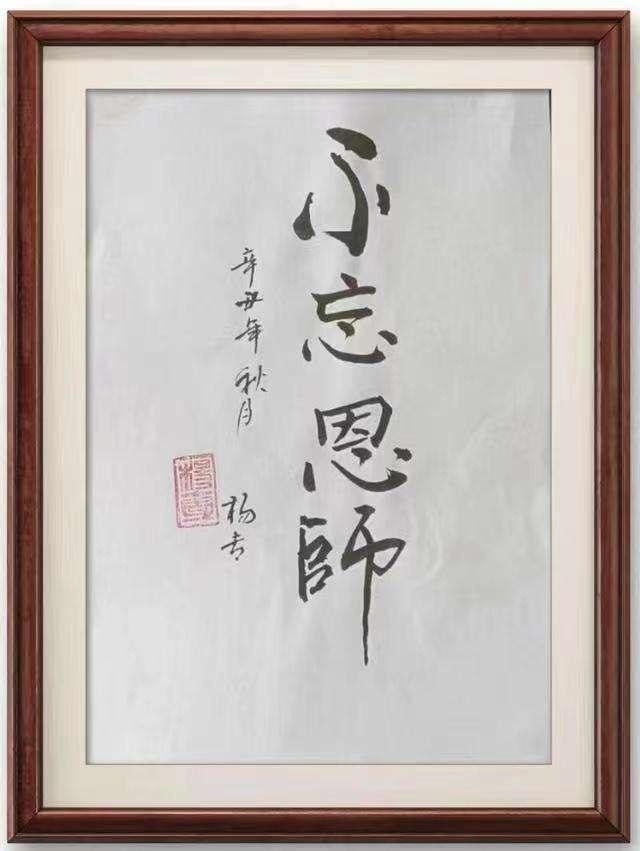 不忘恩師
辛丑年秋月
杨